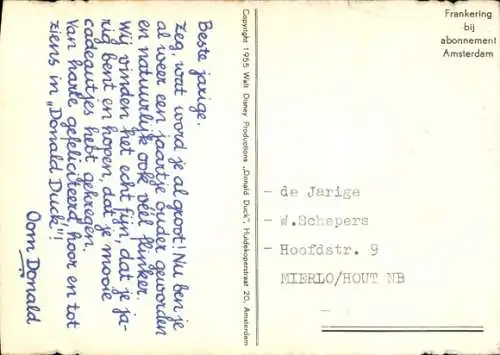 Beste jarige.
Zeg, wat word je al groot! Nu ben je
al weer een jaartje ouder geworden
en natuurlijk ook véél flinker.
Wij vinden het echt fijn, dat je ja-
rig bent en hopen, dat je mooie
cadeautjes hebt gekregen.
Van harte gefeliciteerd hoor en tot
ziens in „Donald Duck"!!
Oom Donald
Copyright 1955 Walt Disney Productions „Donald Duck", Huidekoperstraat 20, Amsterdam
Frankering
bij
abonnement
Amsterdam
- de Jarige
- W.Schepers
- Hoofdstr. 9
MIERLO/HOUT NB
-